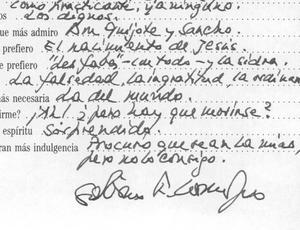 como practicante, ya ninguno.
os Los dignos.
ue más admiro Don Quijote y Sancho.
prefiero El nacimiento de Jesús.
e prefiero "des fabes" y la sidra.
La falsedad, la ingratitud, la
ás necesaria La del mundo.
irme? ¡Ah! ¿pero hay que morirse?
espíritu Sorprendido.
ran más indulgencia Procuro que sean las mías,
pero no lo consigo.